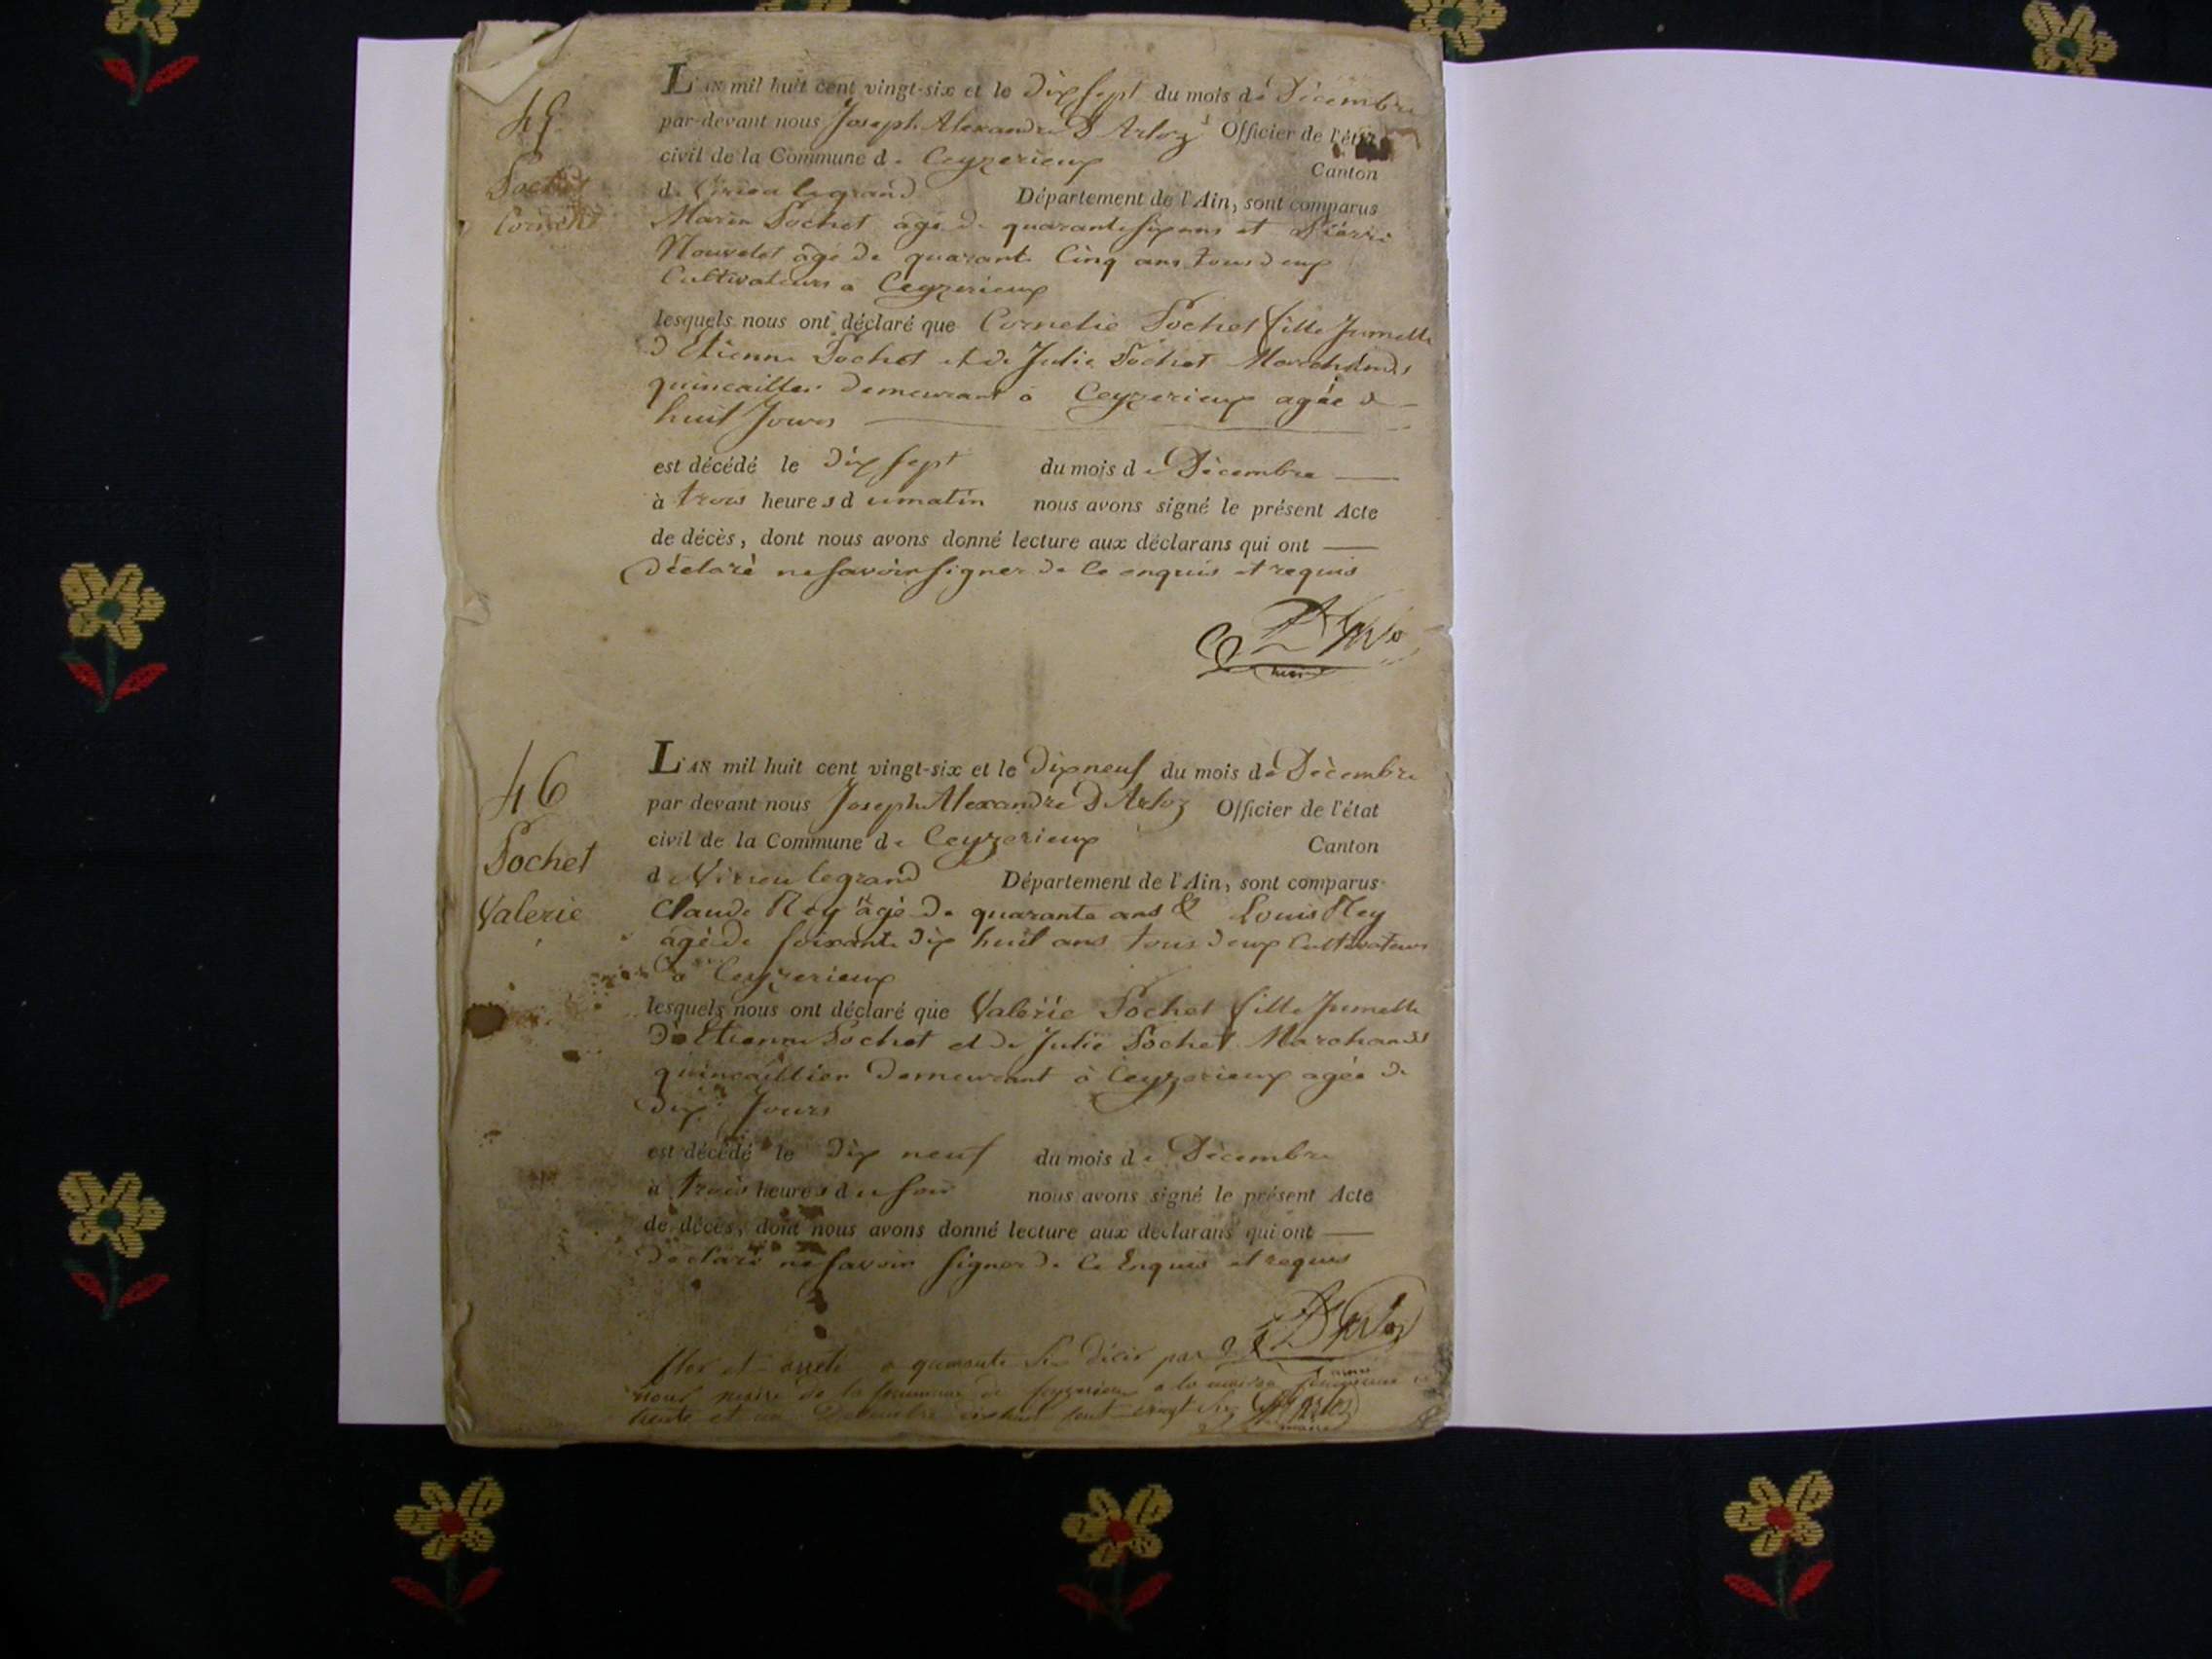 45
Pochet
Cornelie
L'AN mil huit cent vingt-six et le Dix sept du mois de Décembre
par-devant nous Joseph Alexandre D'Arloz Officier de l'état
civil de la Commune de Ceyzerieux Canton
de Virieu legrand Département de l'Ain, sont comparus
Marin Pochet agé de quarante six ans et Pierre
Nouvelet agé de quarante Cinq ans tous deux
Cultivateurs a Ceyzerieux
lesquels nous ont déclaré que Cornelie Pochet fille Jumelle
d'Etienne Pochet et de Julie Pochet Marchands
quincailler demeurant a Ceyzerieux agée de
huit Jours
est décédé le Dix sept du mois de Décembre
à trois heures du matin nous avons signé le présent Acte
de décès, dont nous avons donné lecture aux déclarans qui ont
déclaré ne savoir signer de ce enquis et requis
D'Arloz
maire
46
Pochet
Valerie
L'AN mil huit cent vingt-six et le Dix neuf du mois de Décembre
par devant nous Joseph Alexandre D'Arloz Officier de l'état
civil de la Commune de Ceyzerieux Canton
de Virieu legrand Département de l'Ain, sont comparus
Claude Rey agé de quarante ans & Louis Rey
agé de soixante dix huit ans tous deux Cultivateurs
a Ceyzerieux
lesquels nous ont déclaré que Valérie Pochet fille Jumelle
d'Etienne Pochet et de Julie Pochet Marchands
quincaillier demeurant à Ceyzerieux agée de
dix Jours
est décédé le Dix neuf du mois de Décembre
à trois heures du soir nous avons signé le présent Acte
de décès, dont nous avons donné lecture aux déclarans qui ont
declaré ne savoir signer de Ce Enquis et requis
D'Arloz
Clos et arreté a quarante six décès par
nous maire de la commune de Ceyzerieux a la mairie
trente et un Decembre mil huit cent vingt six D'Arloz
maire